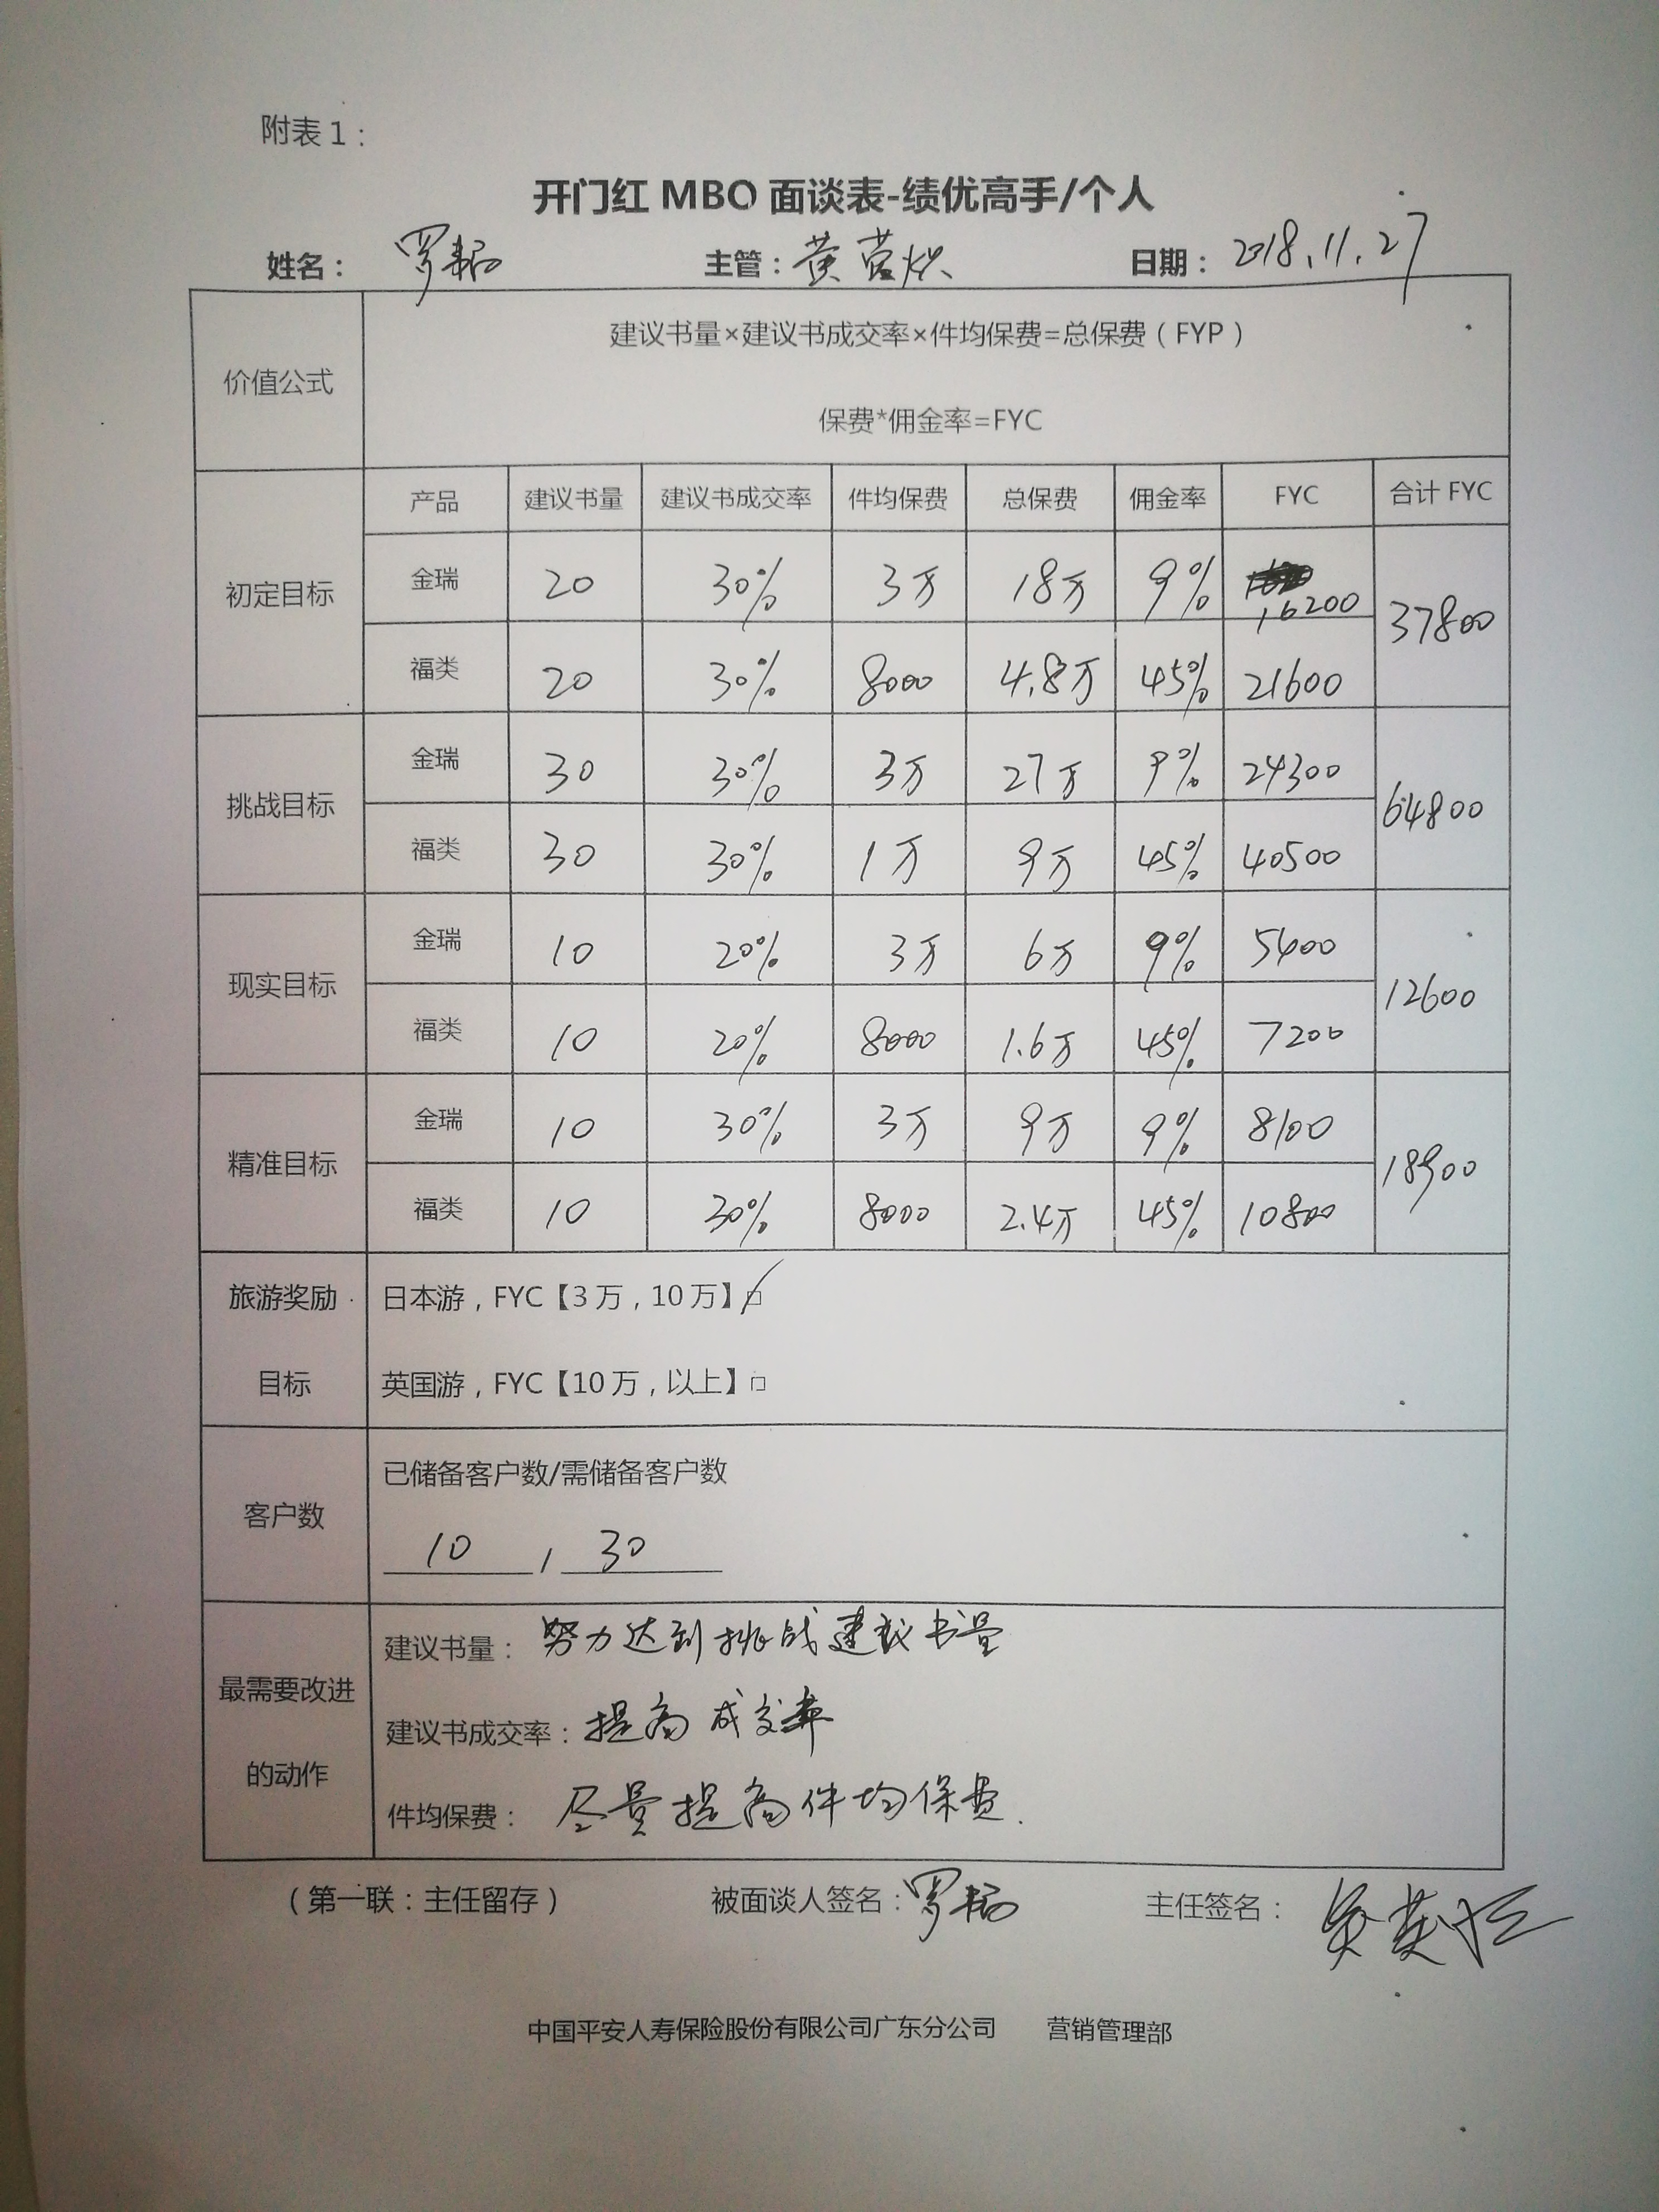 附表1：
开门红 MBO 面谈表-绩优高手/个人
姓名： 罗 主管：黄 日期： 2018.11.27
价值公式
建议书量×建议书成交率×件均保费=总保费（FYP）
保费*佣金率=FYC
产品 建议书量 建议书成交率 件均保费 总保费 佣金率 FYC 合计 FYC
初定目标
金瑞 20 30% 3万 18万 9% 16200
37800
福类 20 30% 8000 4.8万 45% 21600
挑战目标
金瑞 30 30% 3万 27万 9% 24300
64800
福类 30 30% 1万 9万 45% 40500
现实目标
金瑞 10 20% 3万 6万 9% 5400
12600
福类 10 20% 8000 1.6万 45% 7200
精准目标
金瑞 10 30% 3万 9万 9% 8100
18900
福类 10 30% 8000 2.4万 45% 10800
旅游奖励
目标
日本游，FYC【3万，10万】☑
英国游，FYC【10万，以上】□
客户数
已储备客户数/需储备客户数
10 / 30
最需要改进
的动作
建议书量： 努力达到挑战建议书量
建议书成交率：提高成交率
件均保费： 尽量提高件均保费.
（第一联：主任留存） 被面谈人签名：罗 主任签名：
中国平安人寿保险股份有限公司广东分公司 营销管理部